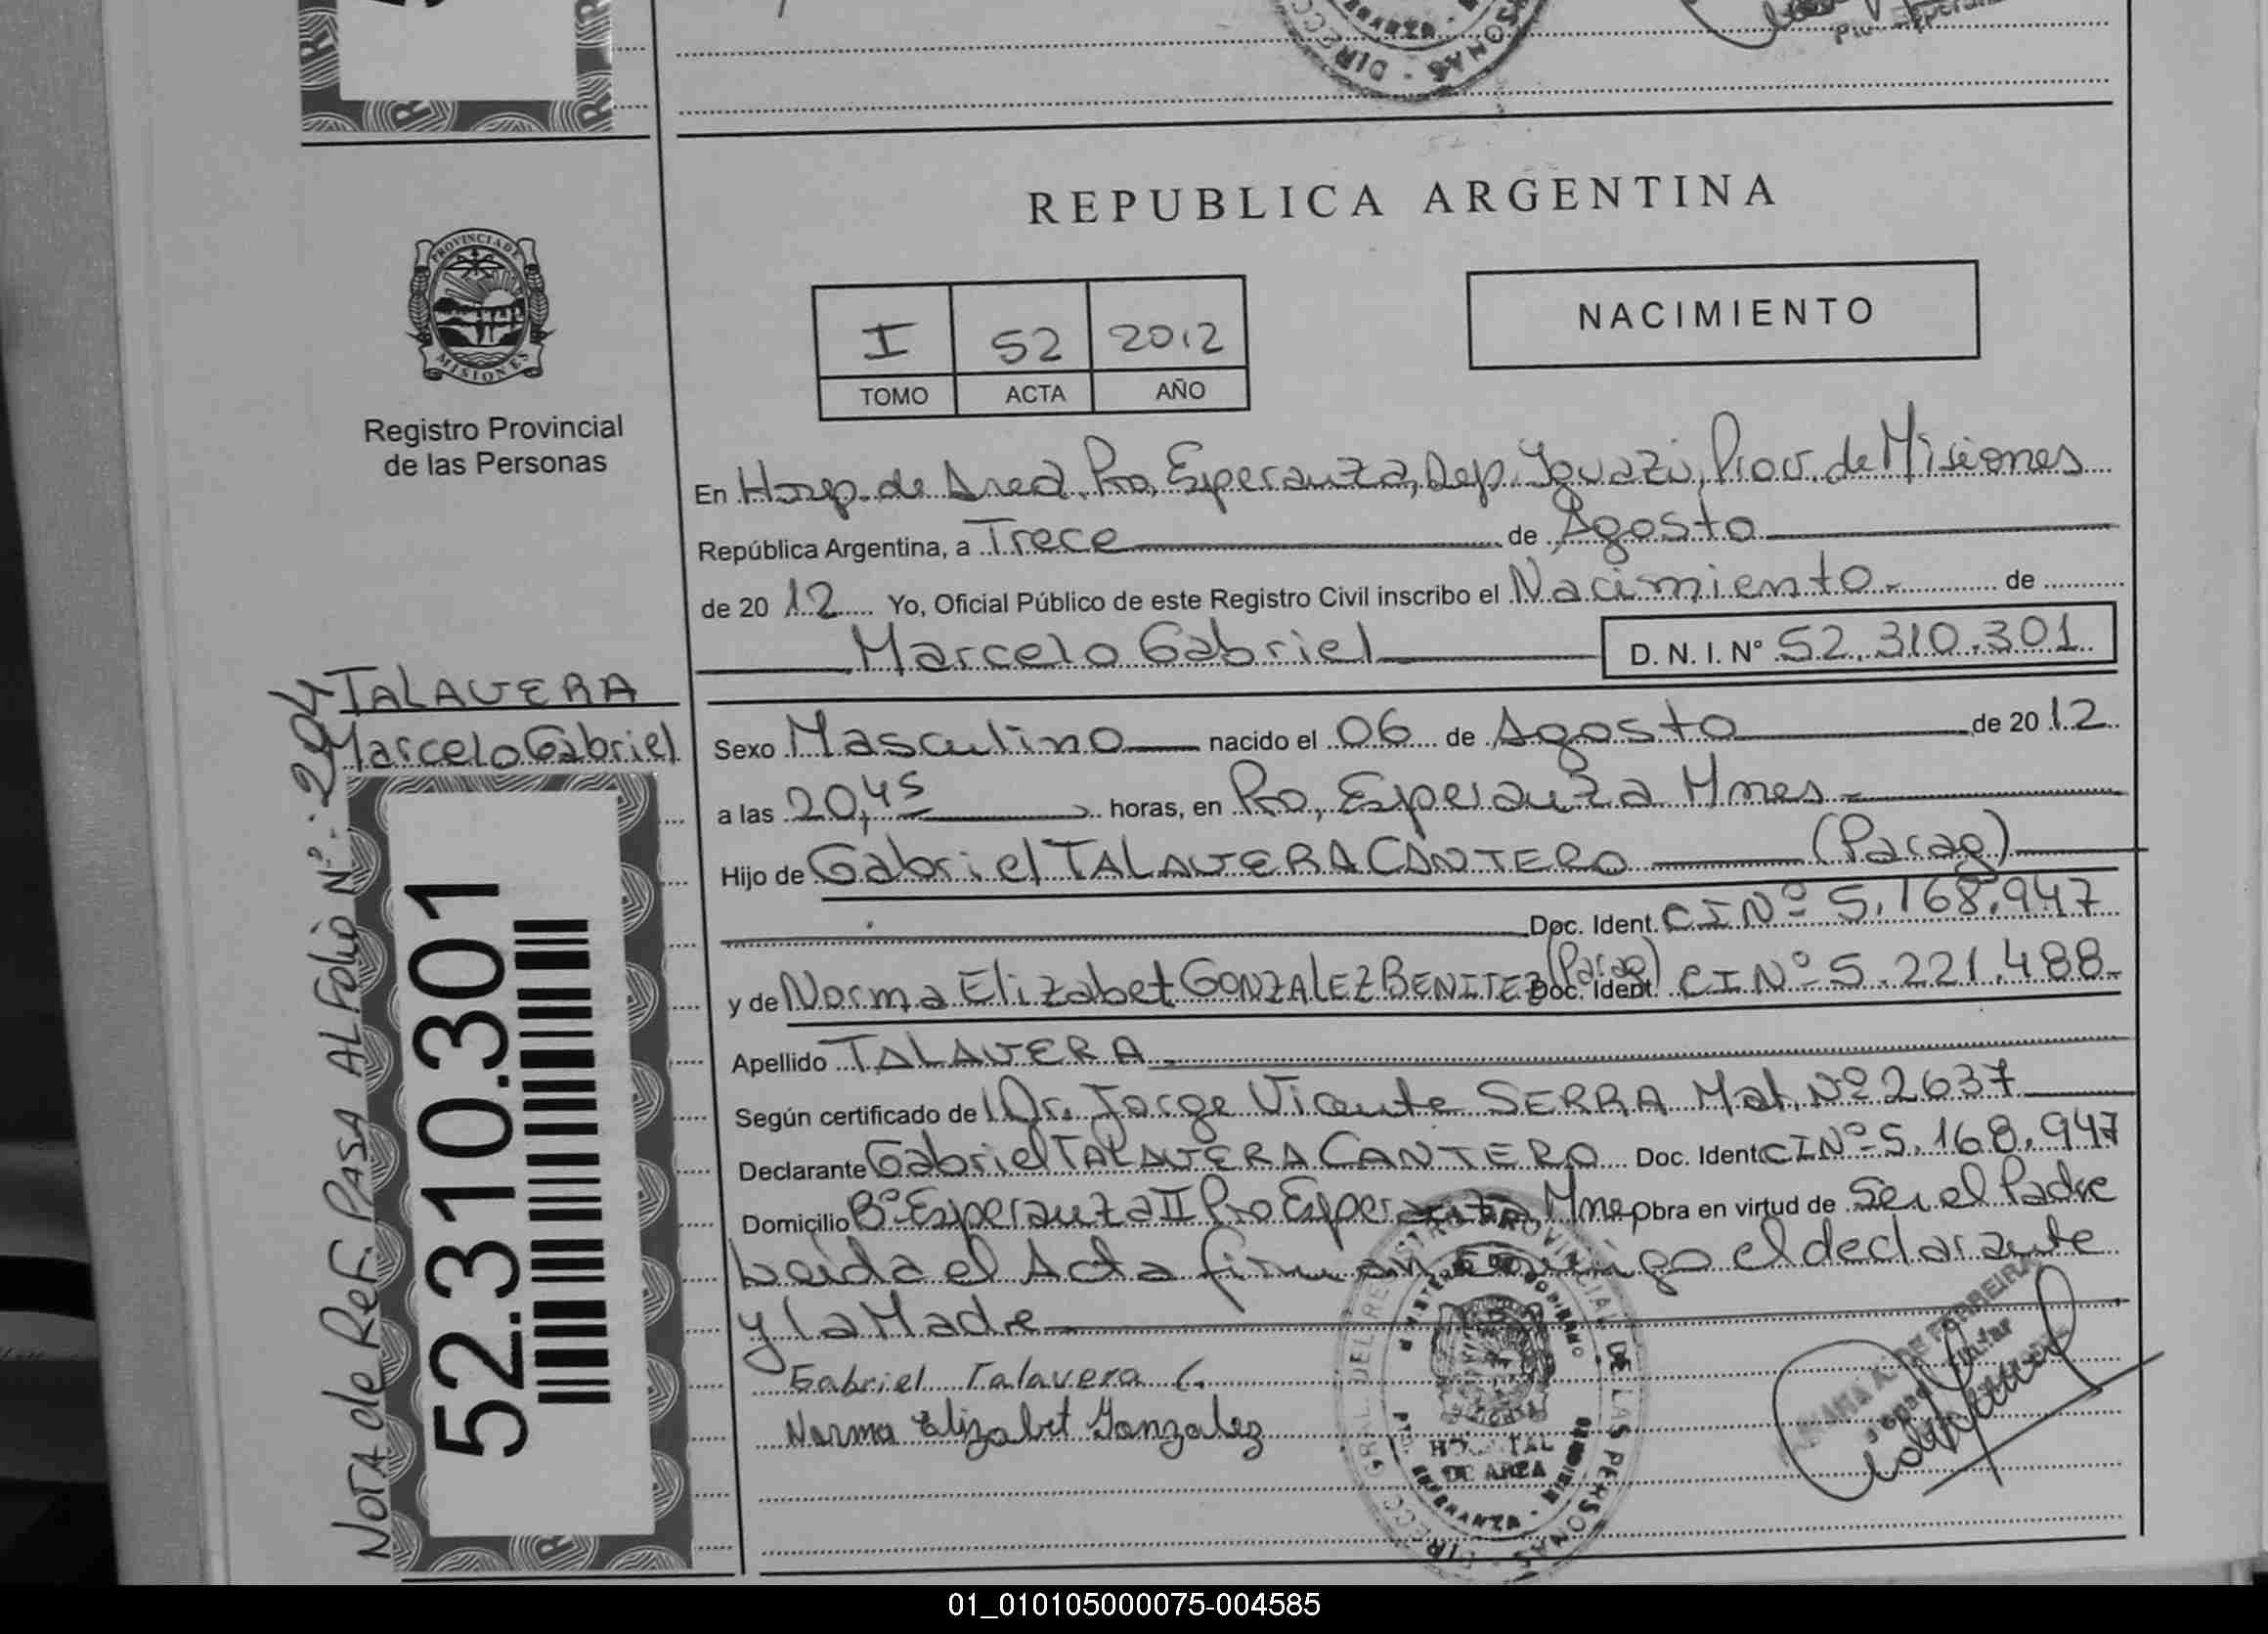 REPUBLICA ARGENTINA
PROVINCIA DE
MISIONES
Registro Provincial
de las Personas
I 52 2012
TOMO ACTA AÑO
NACIMIENTO
En Hosp. de Area Pto, Esperanza, Dep. Iguazú, Prov. de Misiones
República Argentina, a Trece de Agosto
de 20 12 Yo, Oficial Público de este Registro Civil inscribo el Nacimiento.- de
Marcelo Gabriel D. N. I. Nº 52.310.301
TALAVERA
Marcelo Gabriel
Sexo Masculino nacido el 06 de Agosto de 20 12
a las 20,45 horas, en Pto, Esperanza Mnes.-
Hijo de Gabriel TALAVERA CANTERO (Parag)
Doc. Ident. CI Nº 5.168.947
y de Norma Elizabet GONZALEZ BENITEZ (Parag) Doc. Ident. CI Nº 5.221.488-
Apellido TALAVERA.-
Según certificado de Dr. Jorge Vicente SERRA Mat. Nº 2637
Declarante Gabriel TALAVERA CANTERO Doc. Ident CI Nº 5.168.947
Domicilio Bº Esperanza II Pto Esperanza Mne Obra en virtud de Ser el Padre
Leida el Acta firman conmigo el declarante
y la Madre
Gabriel Talavera C.
Norma Elizabet Gonzalez
HOSPITAL
DE AREA
NOTA de Ref. PASA AL Folio Nº: 204
52.310.301
01_010105000075-004585